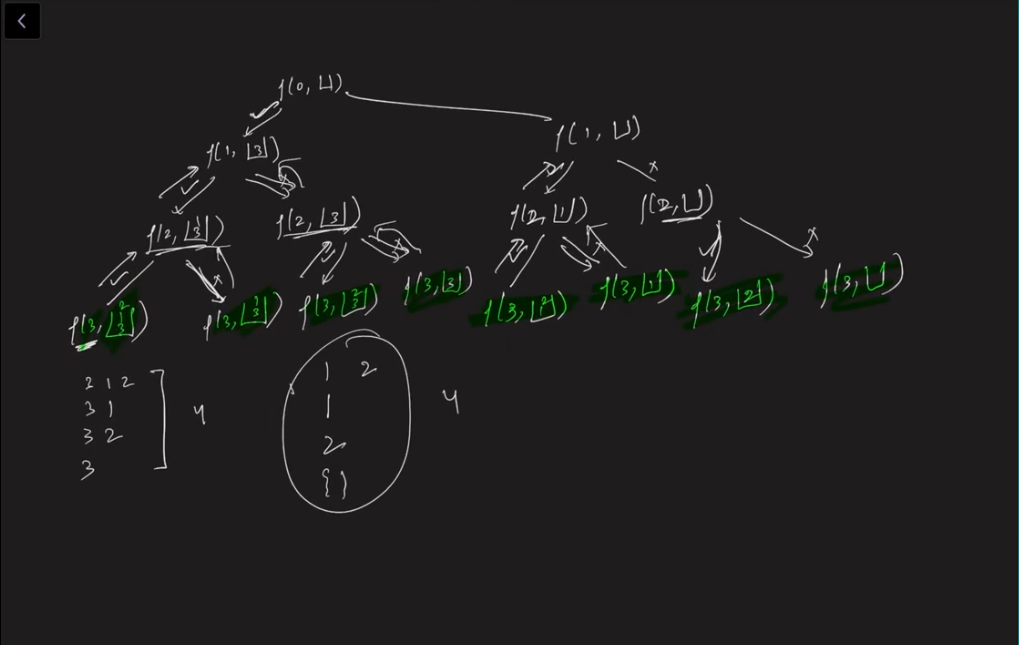 f(0, [])
f(1, [3]) f(1, [])
f(2, [3 1]) f(2, [3]) f(2, [1]) f(2, [])
f(3, [3 1 2]) f(3, [3 1]) f(3, [3 2]) f(3, [3]) f(3, [1 2]) f(3, [1]) f(3, [2]) f(3, [])
2 1 2
3 1
3 2
3
4
1 2
1
2
{}
4